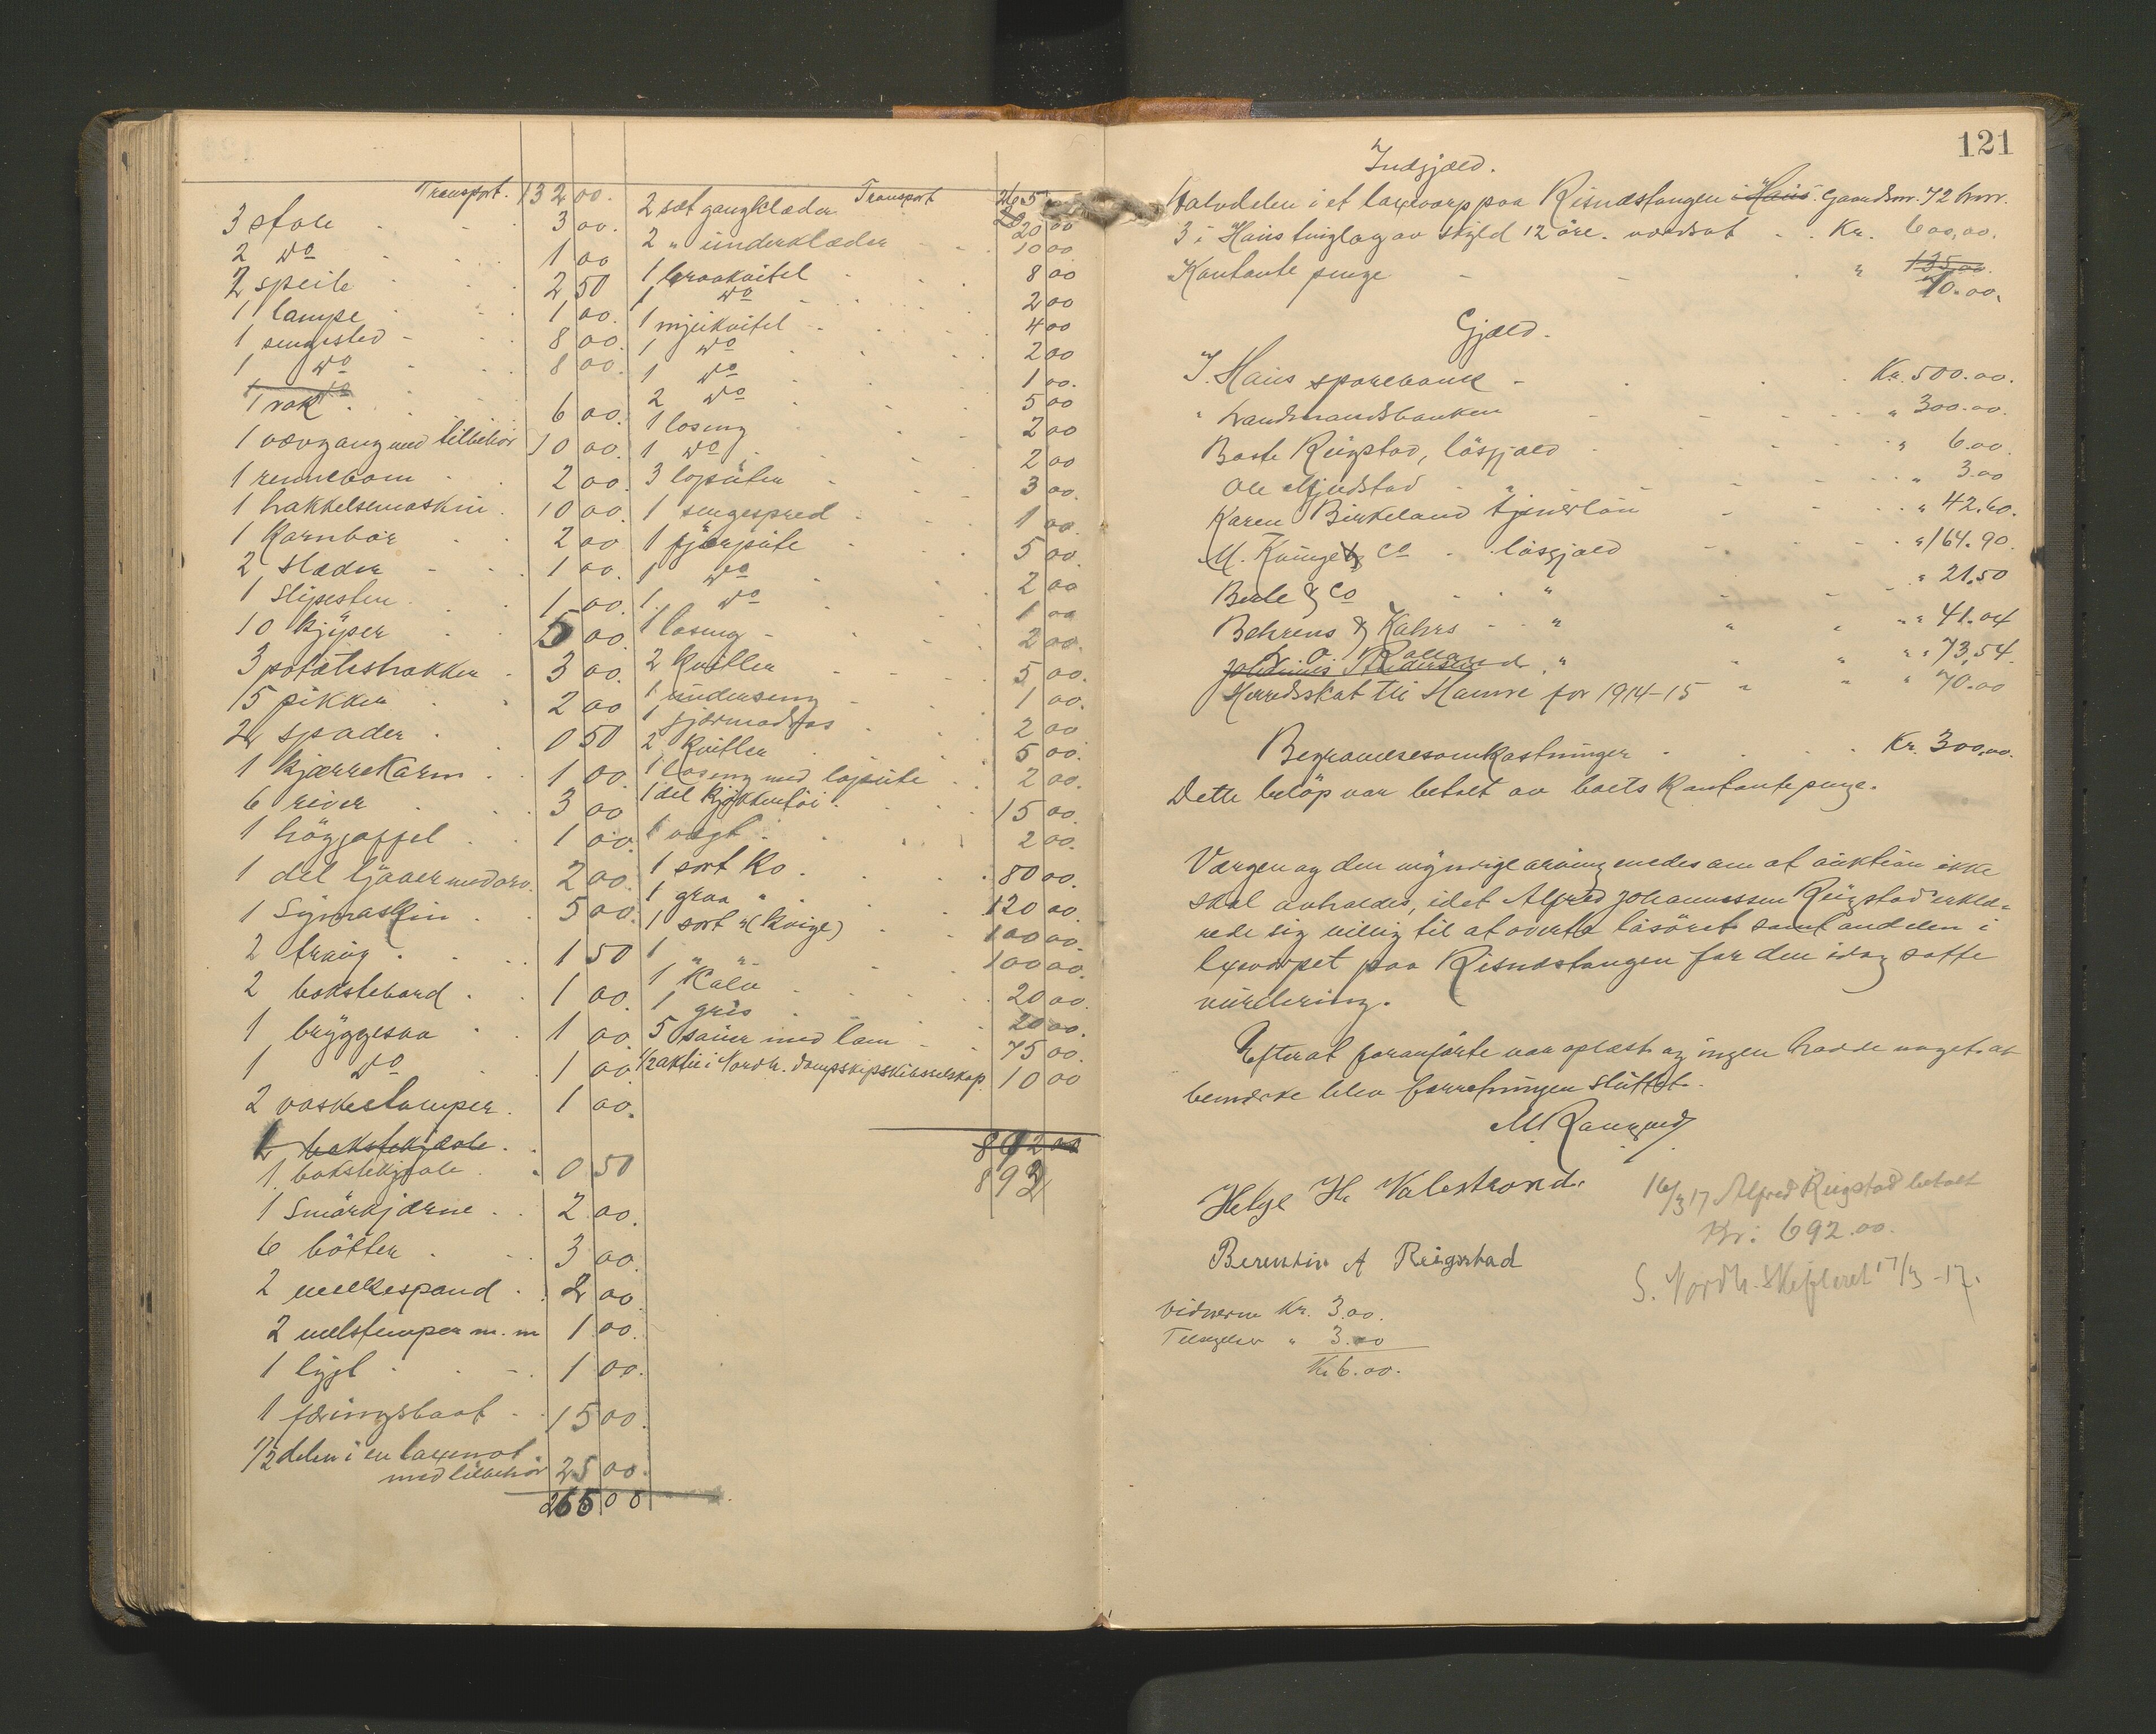 Transport. 132 00.
3 stole 3 00.
2 do 1 00
2 speile 2 50
1 lampe 1 00.
1 sengested 8 00.
1 do 8 00.
1 rok 6 00.
1 vævgang med tilbehör 10 00.
1 rennebom 2 00.
1 hakkelsemaskin 10 00.
1 Karnbör 2 00
2 slæder 1 00.
1 Slipesten 1 00.
10 kjyper 5 00
3 poteteshakker 3 00.
15 pikker 2 00
2 spader 0 50
1 kjærrekarm 1 00.
6 river 3 00
1 höygaffel 1 00.
1 del ljaaer med orv. 2 00.
1 Symaskin 5 00.
2 traug 1 50
2 bakstebord 1 00.
1 bryggesaa 1 00
1 do 1 00
2 vaskestamper 1 00.
1 bakstekjæle
1 bakstekjæle 0 50
1 Smörkjærne 2 00.
6 bötter 3 00.
2 melkespand 2 00
2 melstamper m.m 1 00.
1 lygt 1 00.
1 færingsbaat 15 00.
1/2 delen i en laxenot
med tilbehör 25 00.
265 00
Transport 265
2 sæt gangklæder 20 00
2 " underklæder 10 00
1 braakvitel 8 00
1 do 2 00
1 mjukvitel 4 00
1 do 2 00
1 do 1 00.
2 do 5 00
1 loseng 2 00
1 do 2 00
3 loputer 3 00.
1 sengespred 1 00
1 fjærpute 5 00.
1 do 2 00
1 do 1 00
1 loseng 2 00.
2 kvitler 5 00.
1 underseng 1 00.
1 fjærmadras 2 00
2 kvitler 5 00.
1 loseng med lopute 2 00.
1 del kjökkentöi 15 00.
1 vægt 2 00.
1 sort ko 80 00.
1 graa " 120 00.
1 sort " (kvige) 100 00.
1 " " 100 00.
1 Kalv 20 00.
1 gris 20 00.
5 sauer med lam 75 00.
1/2 aktie i Nordh. dampskipsskibsselskap 10 00
892 00
892
121
Indgjæld.
Halvdelen i et laxevarp paa Risnæstangen i Haus Gaardsnr. 72 brnr.
3 i Haus tinglag av skyld 12 öre. værdsat Kr. 600,00.
Kontante penge " 135,00.
10.00.
Gjæld.
I. Haus sparebank Kr. 500.00.
" Landmandsbanken " 300.00.
Baste Reigstad, lösgjæld " 6.00.
Ole Mjeldstad " " 3.00
Karen Birkeland tjenerlön " 42.60.
M. Kuinge & Co lösgjæld " 164.90.
Berle & Co " " 21.50
Behrens & Kahrs " " 41.04
L. O. Rolland " " 73,54.
Herredsskat til Hamre for 1914-15 " 70.00
Begravelsesomkostninger Kr. 300,00.
Dette belöp var betalt av boets kontante penge.
Værgen og den myndige arving enedes om at auktion ikke
skal avholdes, idet Alfred Johannessen Reigstad erklæ-
rede sig villig til at overta lösöret samt andelen i
lxevarpet paa Risnæstangen for den idag satte
vurdering.
Efterat foranförte var oplæst og ingen hadde noget at
bemerke blev forretningen sluttet.
M. Raunged
Helge H. Valestrand.
Berentin A Reigstad
16/3 17 Alfred Reigstad betalt
Kr: 692.00.
S. Nordh. Skifteret 17/3 -17.
Vidnerne Kr. 3.00.
Tilsigelser " 3.00
Kr 6.00.